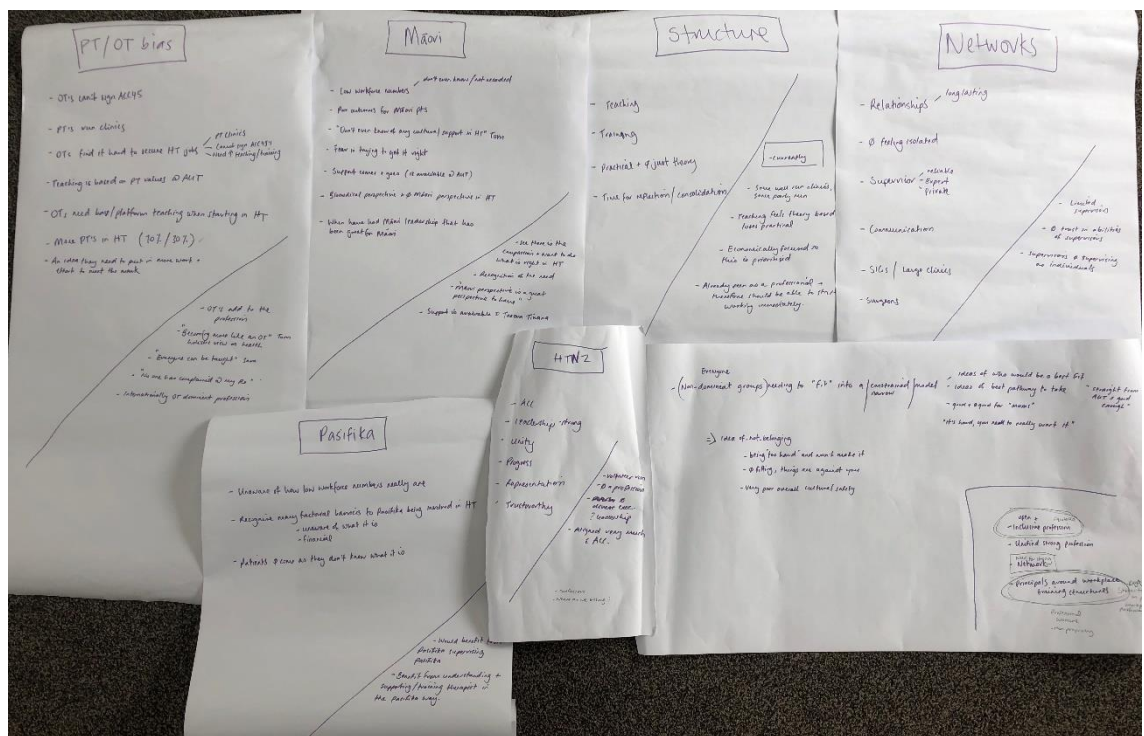 PT/OT bias
- OT's can't sign ACC45
- PT's run clinics
- OTs find it hard to secure HT jobs
PT clinics
Cannot sign ACC45
need ↑ teaching/training
- Teaching is based on PT values @ AUT
- OTs need bios/platform teaching when starting in HT
- More PT's in HT (70%/30%)
- An idea they need to put in more work +
effort to meet the mark
- OT's add to the
profession
- "Becoming more like an OT"
holistic view on health
- "Everyone can be taught"
- "No one has complained @ my do"
- Internationally OT dominant profession
Māori
- Low workforce numbers
don't even know/not recorded
- Poor outcomes for Māori pts
- "Don't even know of any cultural support in HT"
- Fear in trying to get it right
- Support comes + goes (is available @ AUT)
- Biomedical perspective + ∅ Māori perspective in HT
- When have had Māori leadership that has
been great for Māori
- see there is the
compassion + want to do
what is right in HT
- Recognition of the need
- "Māori perspective is a great
perspective to have"
- Support is available
Structure
- Teaching
- Training
- Practical + ∅ just theory
- Time for reflection/consolidation
- currently
- Some well run clinics,
some poorly run
- Teaching feels theory based
loses practical
- Economically focused so
this is prioritised
- Already seen as a professional +
therefore should be able to start
working immediately.
Networks
- Relationships
long lasting
- ∅ feeling isolated
- Supervisor
reliable
Expert
Private
- Communication
- SIGs / Large clinics
- Surgeons
- Limited
supervisors
- ∅ trust in abilities
of supervisors
- Supervisors ∅ supervising
as individuals
Pasifika
- Unaware of how low workforce numbers really are
- Recognise many factorial barriers to Pasifika being involved in HT
- unaware of what it is
- financial
- Patients ∅ come as they don't know what it is
- Would benefit from
Pasifika supervising
Pasifika
- "Benefit from understanding +
supporting/training therapist in
the pasifika way.
HTNZ
- ACC
- Leadership strong
- Unity
- Progress
- Representation
- Trustworthy
- volunteer run
- ? leadership
- Aligned very much
ACC.
Everyone
- (Non-dominant groups) needing to "fit" into a / constrained / model
narrow
- ideas of who would be a best fit
- ideas of best pathway to take
"straight from
AUT ∅ good
enough"
"it's hard, you need to really want it"
=> Idea of not belonging
- being 'too hard' and won't make it
- ∅ fitting, things are against you
- very poor overall cultural safety
open +
- Inclusive profession
- Unified strong profession
- Network
- Principals around workplace
training structures